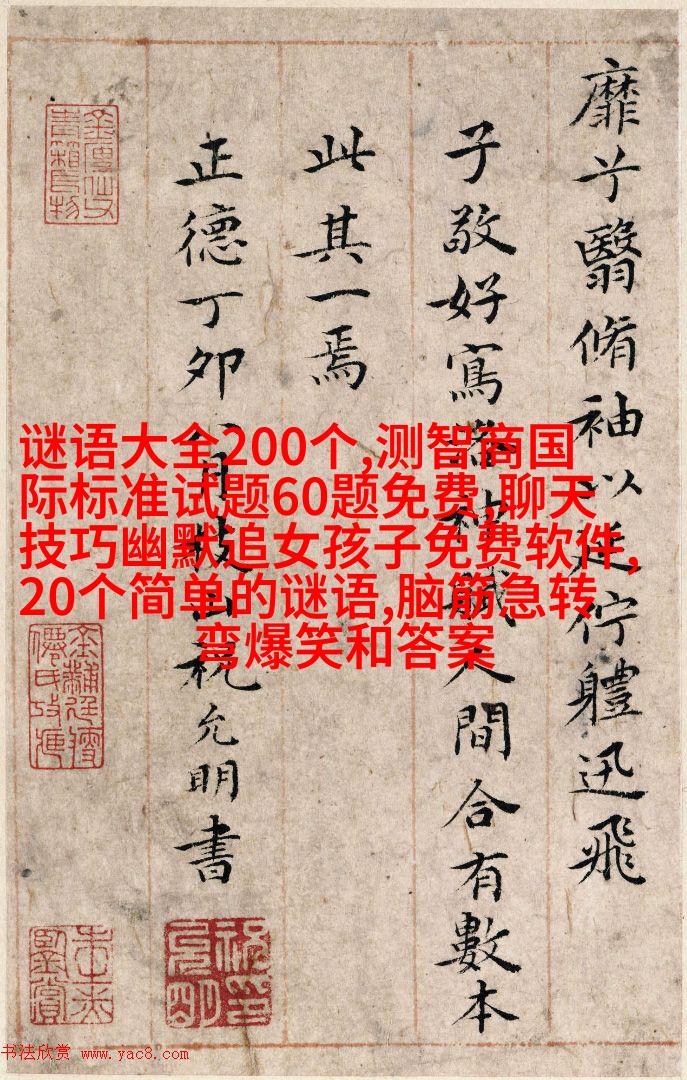 靡兮翳脩袖以延佇體迅飛
子敬好寫洛神賦人間合有數本
此其一焉
正德丁卯八月枝山祝允明書
谜语大全200个,测智商国
际标准试题60题免费,聊天
技巧幽默追女孩子免费软件,
20个简单的谜语,脑筋急转
弯爆笑和答案
书法欣赏 www.yac8.com